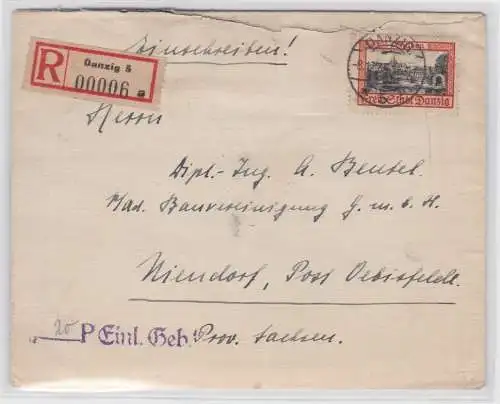 Einschreiben!
R Danzig 5
00006 a
DANZIG
Freie Stadt Danzig
Herrn
Dipl.-Ing. A. Beusel.
Bauvereinigung G.m.b.H.
Niendorf, Post Oebisfelde
20 P Einl. Geb. Prov. Sachsen.